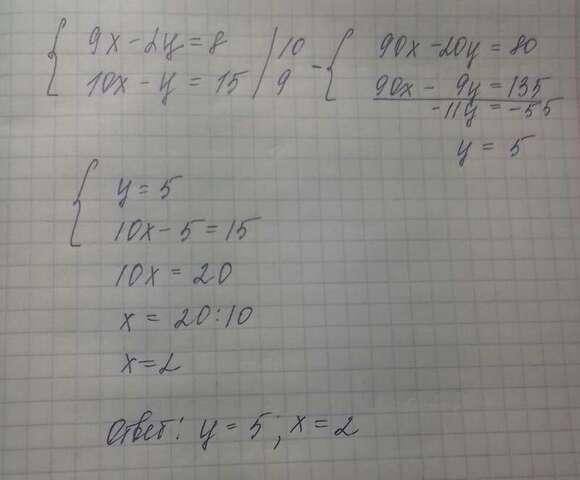 9x - 2y = 8 | 10
10x - y = 15 | 9
- 90x - 20y = 80
90x - 9y = 135
-11y = -55
y = 5
y = 5
10x - 5 = 15
10x = 20
x = 20:10
x = 2
Ответ: y = 5; x = 2